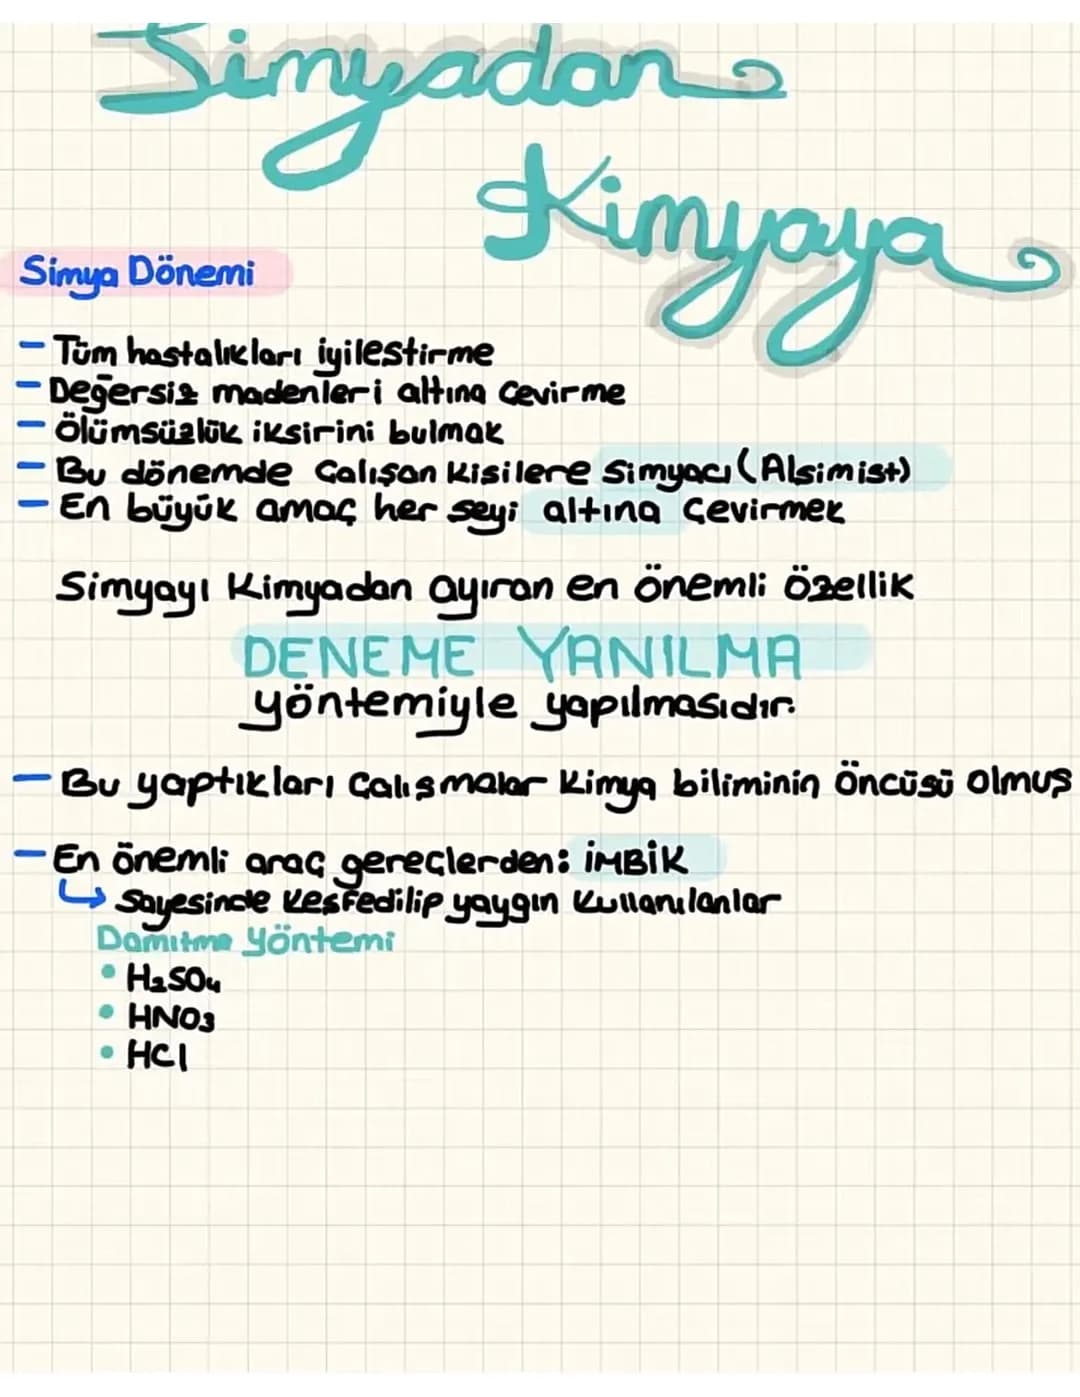 Simyadan
Kimyaya
Simya Dönemi
- Tüm hastalıkları iyilestirme
- Değersiz madenleri altına Çevirme
- Ölümsüzlük iksirini bulmak
- Bu dönemde Çalışan Kisilere Simyacı (Alsimist)
- En büyük amaç her seyi altına Çevirmek
Simyayı Kimyadan ayıran en önemli özellik
DENEME YANILMA
yöntemiyle yapılmasıdır.
- Bu yaptıkları Çalışmalar Kimya biliminin Öncüsü Olmuş
- En önemli araç gereçlerden: İMBİK
↳ Sayesinde Kesfedilip yaygın Kullanılanlar
Damıtma Yöntemi
• H₂SO₄
• HNO₃
• HCl